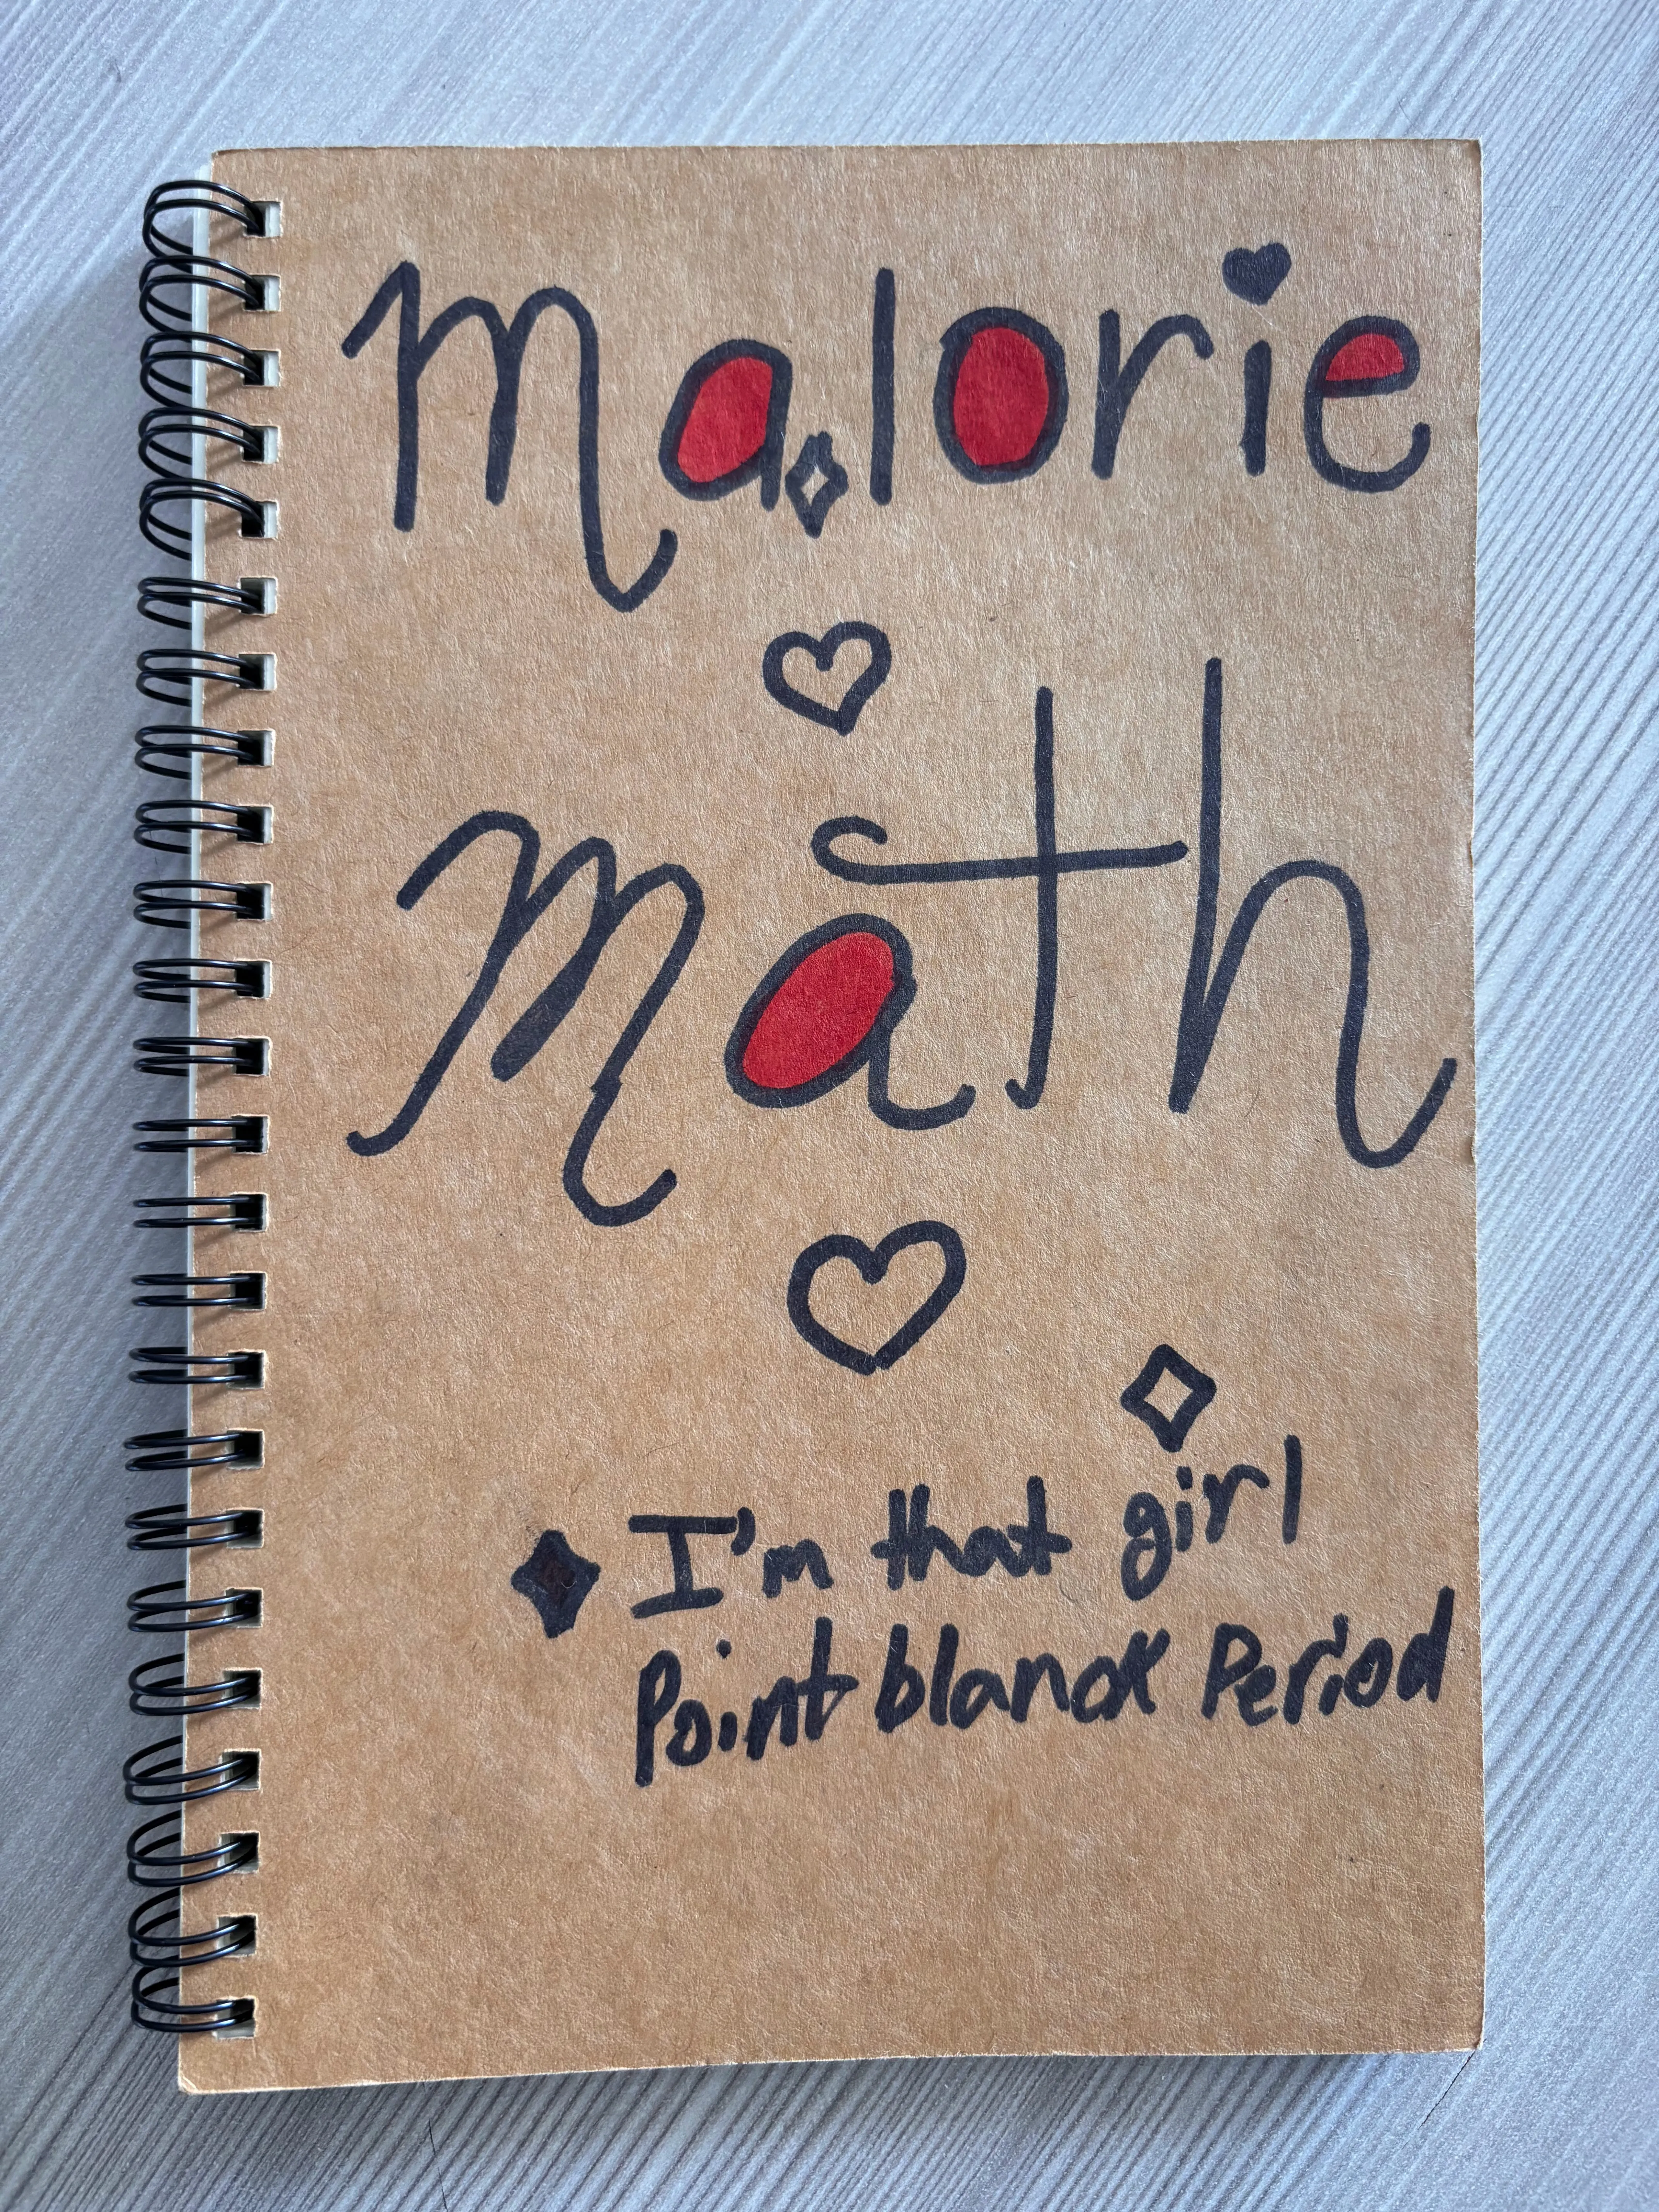 Malorie
Math
I'm that girl
Point blanck Period